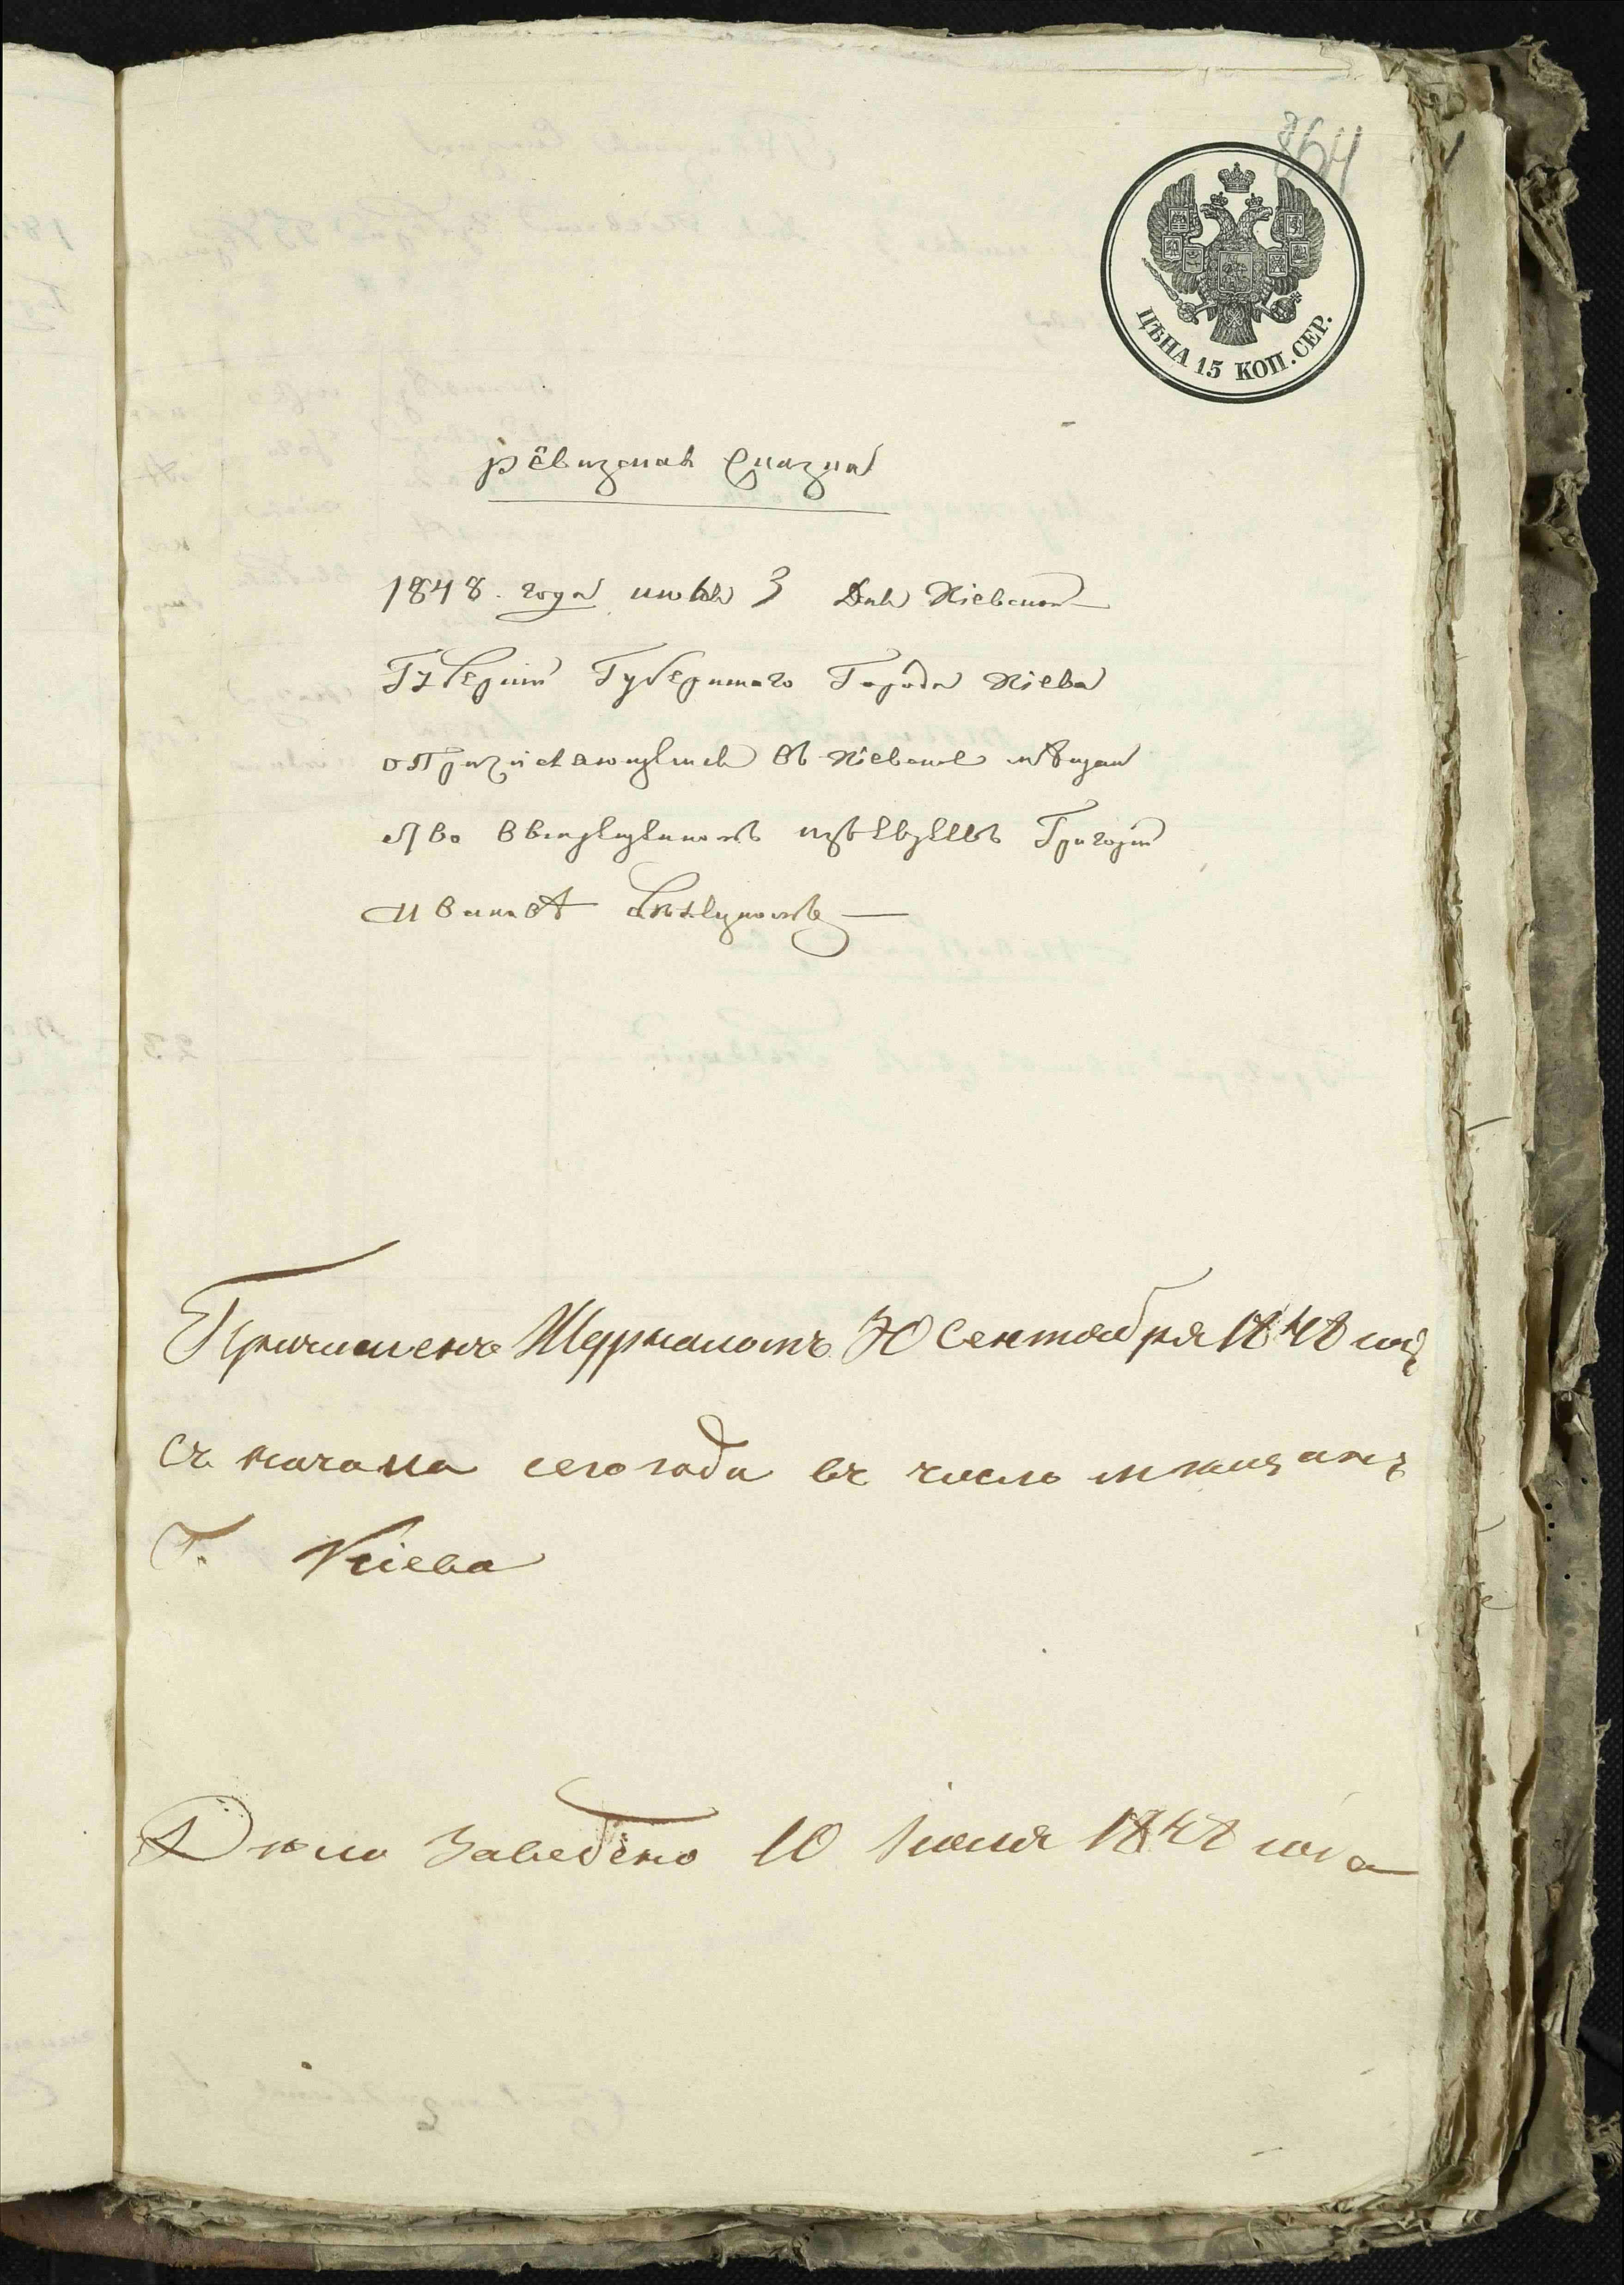 864
ЦѢНА 15 КОП. СЕР.
Ревизская Сказка
1848. года июня 3 дня Кіевской
Губерніи Губернскаго Города Кіева
о Причисляющемся въ Кіевское мѣщан
ство Григоріи
Ивановѣ
Причисленъ Журналомъ 30 Сентября 1848 года
Съ начала сего года въ число мѣщанъ
Г. Кіева
Дѣло Заведено 10 Іюня 1848 года